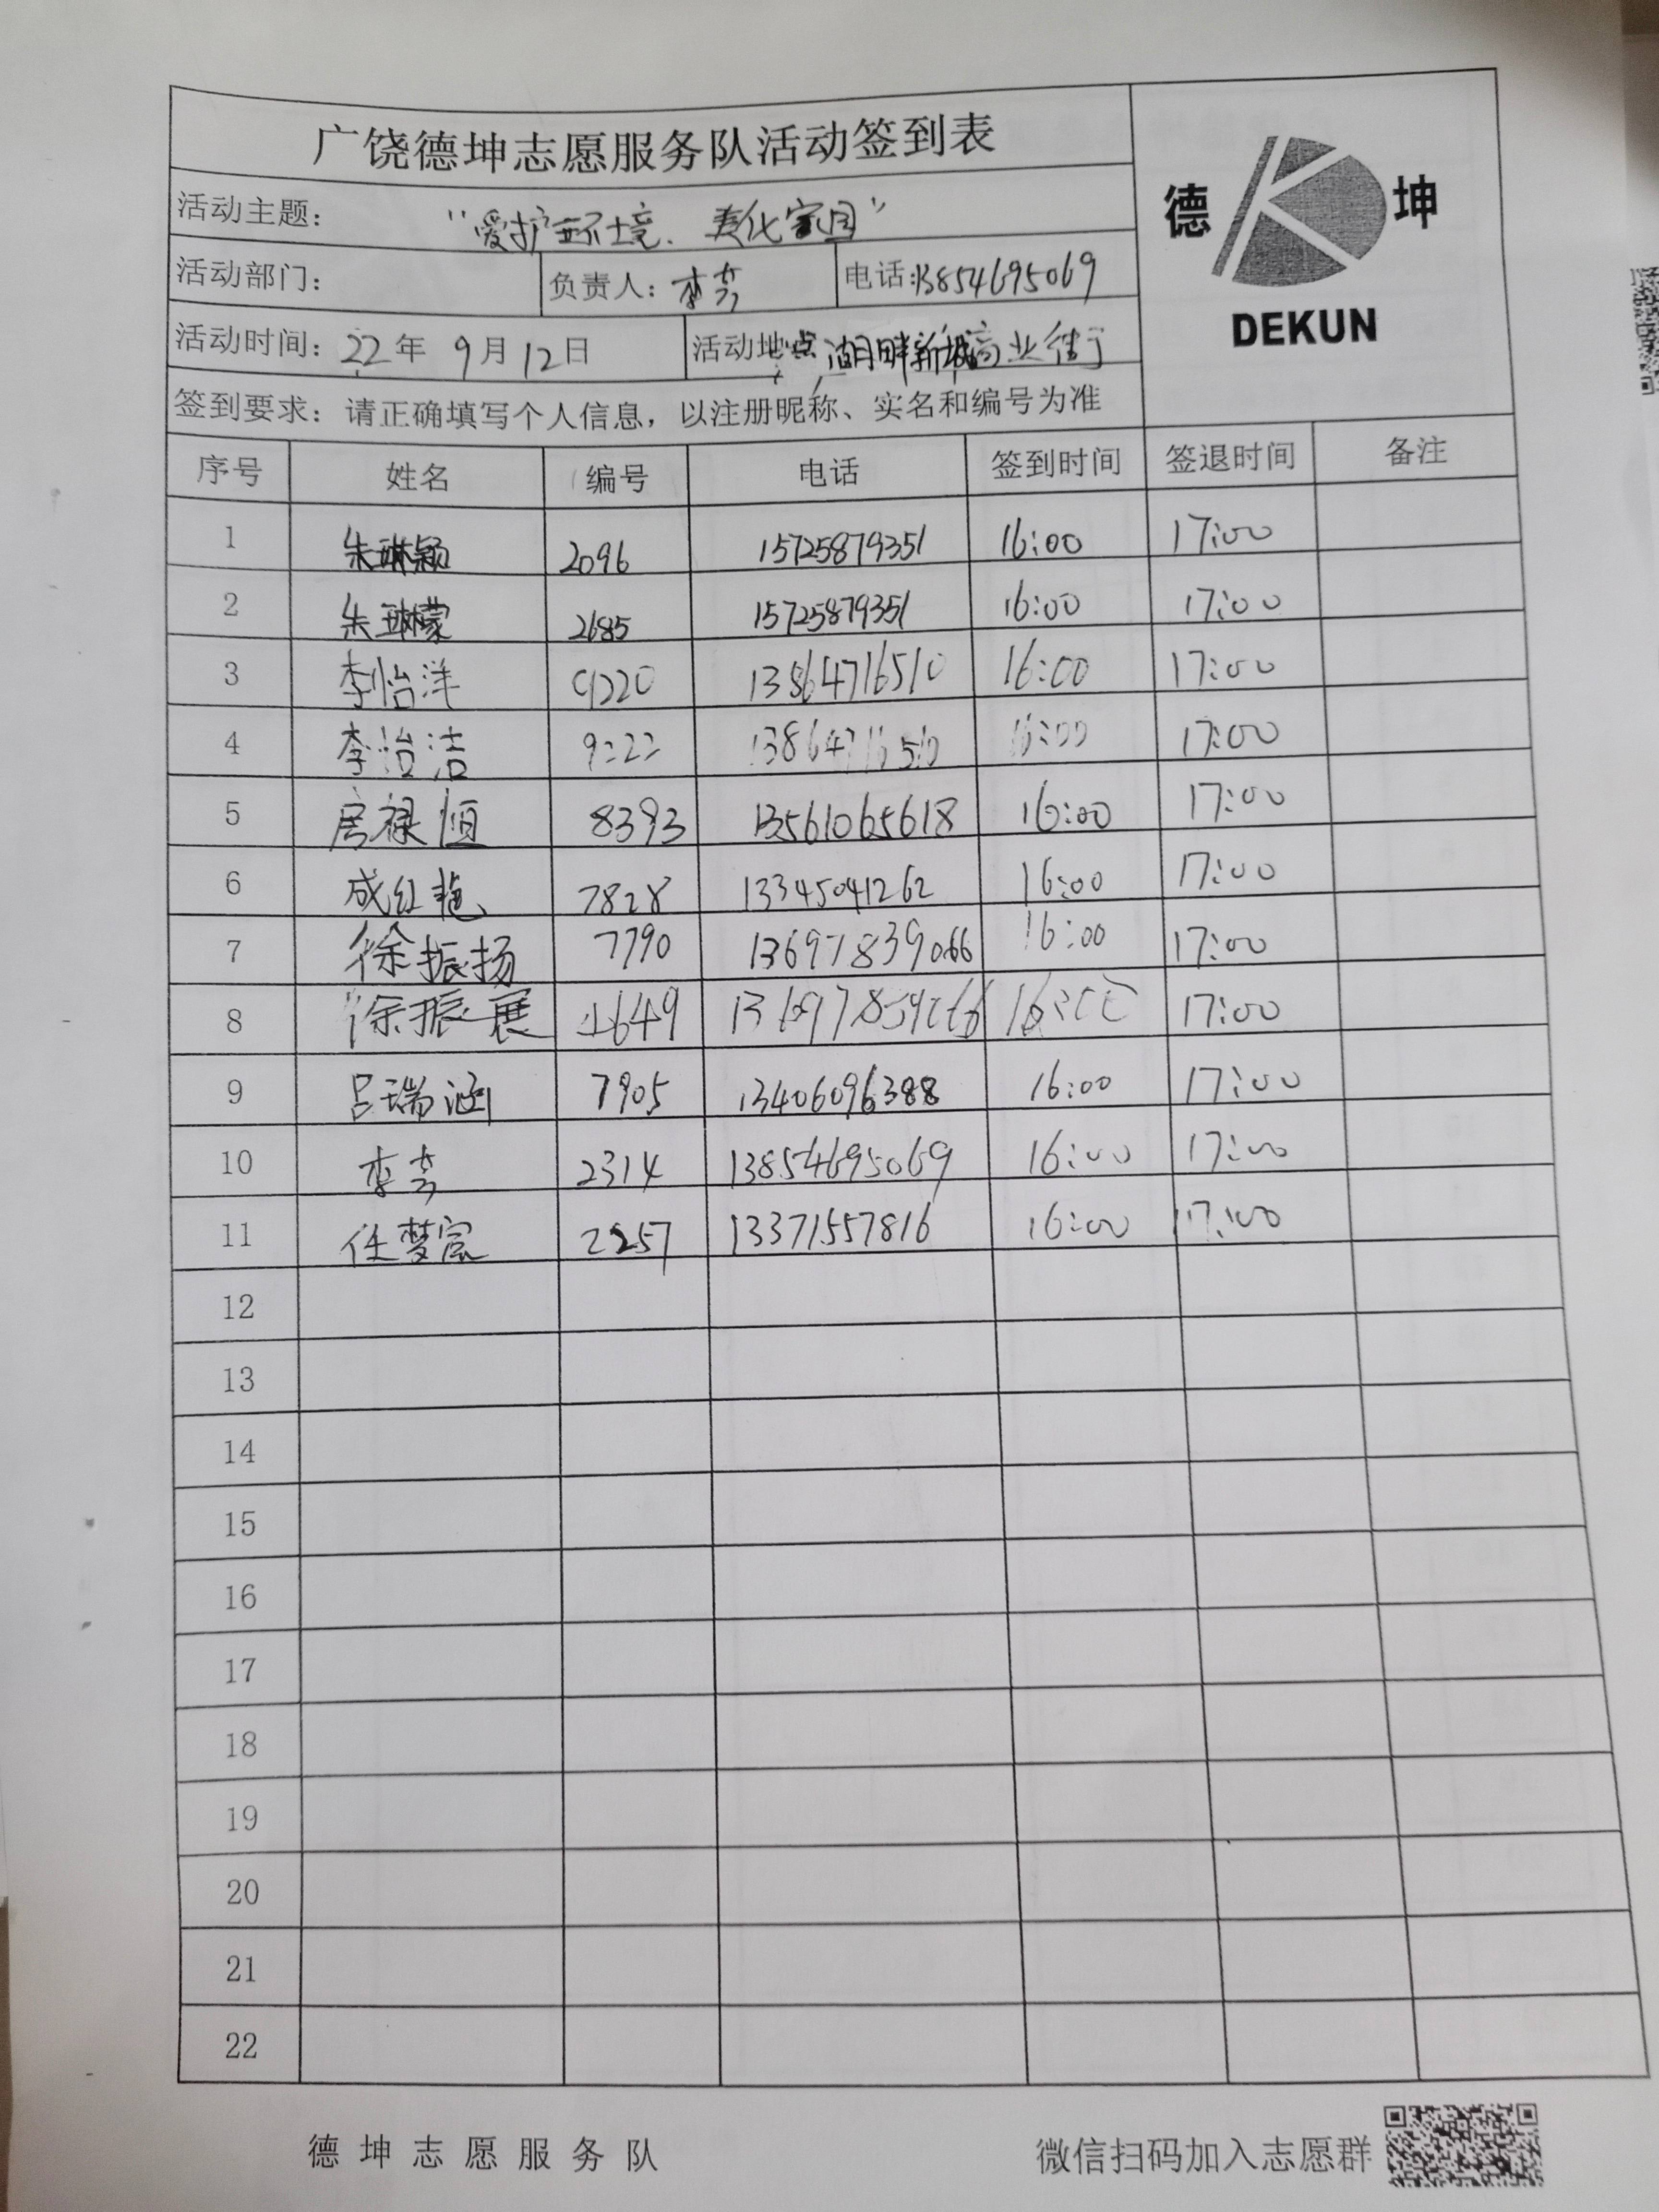 广饶德坤志愿服务队活动签到表
德 坤
DEKUN
活动主题： “爱护环境、美化家园”
活动部门： 负责人：李芳 电话：13854695069
活动时间：22年 9月12日 活动地点 湖畔新城商业街
签到要求：请正确填写个人信息，以注册昵称、实名和编号为准
序号 姓名 编号 电话 签到时间 签退时间 备注
1 朱琳颖 2096 15725879351 16:00 17:00
2 朱琳檬 2685 15725879351 16:00 17:00
3 李怡洋 9220 13864716510 16:00 17:00
4 李怡洁 9222 13864716510 16:00 17:00
5 房禄恒 8393 13561065618 16:00 17:00
6 成红艳 7828 13345041262 16:00 17:00
7 徐振扬 7790 13697839066 16:00 17:00
8 徐振展 4649 13697839066 16:00 17:00
9 吕瑞涵 7905 13406096388 16:00 17:00
10 李芳 2314 13854695069 16:00 17:00
11 任梦宸 2257 13371557816 16:00 17:00
12
13
14
15
16
17
18
19
20
21
22
德坤志愿服务队 微信扫码加入志愿群